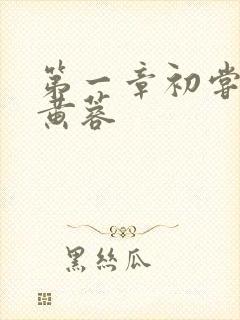 第一章初尝
黄蓉
黑丝瓜